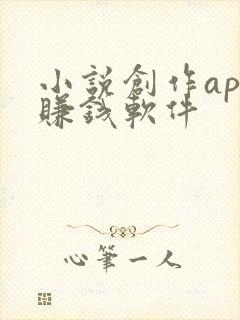 小説創作ap
賺錢軟件
心筆一人